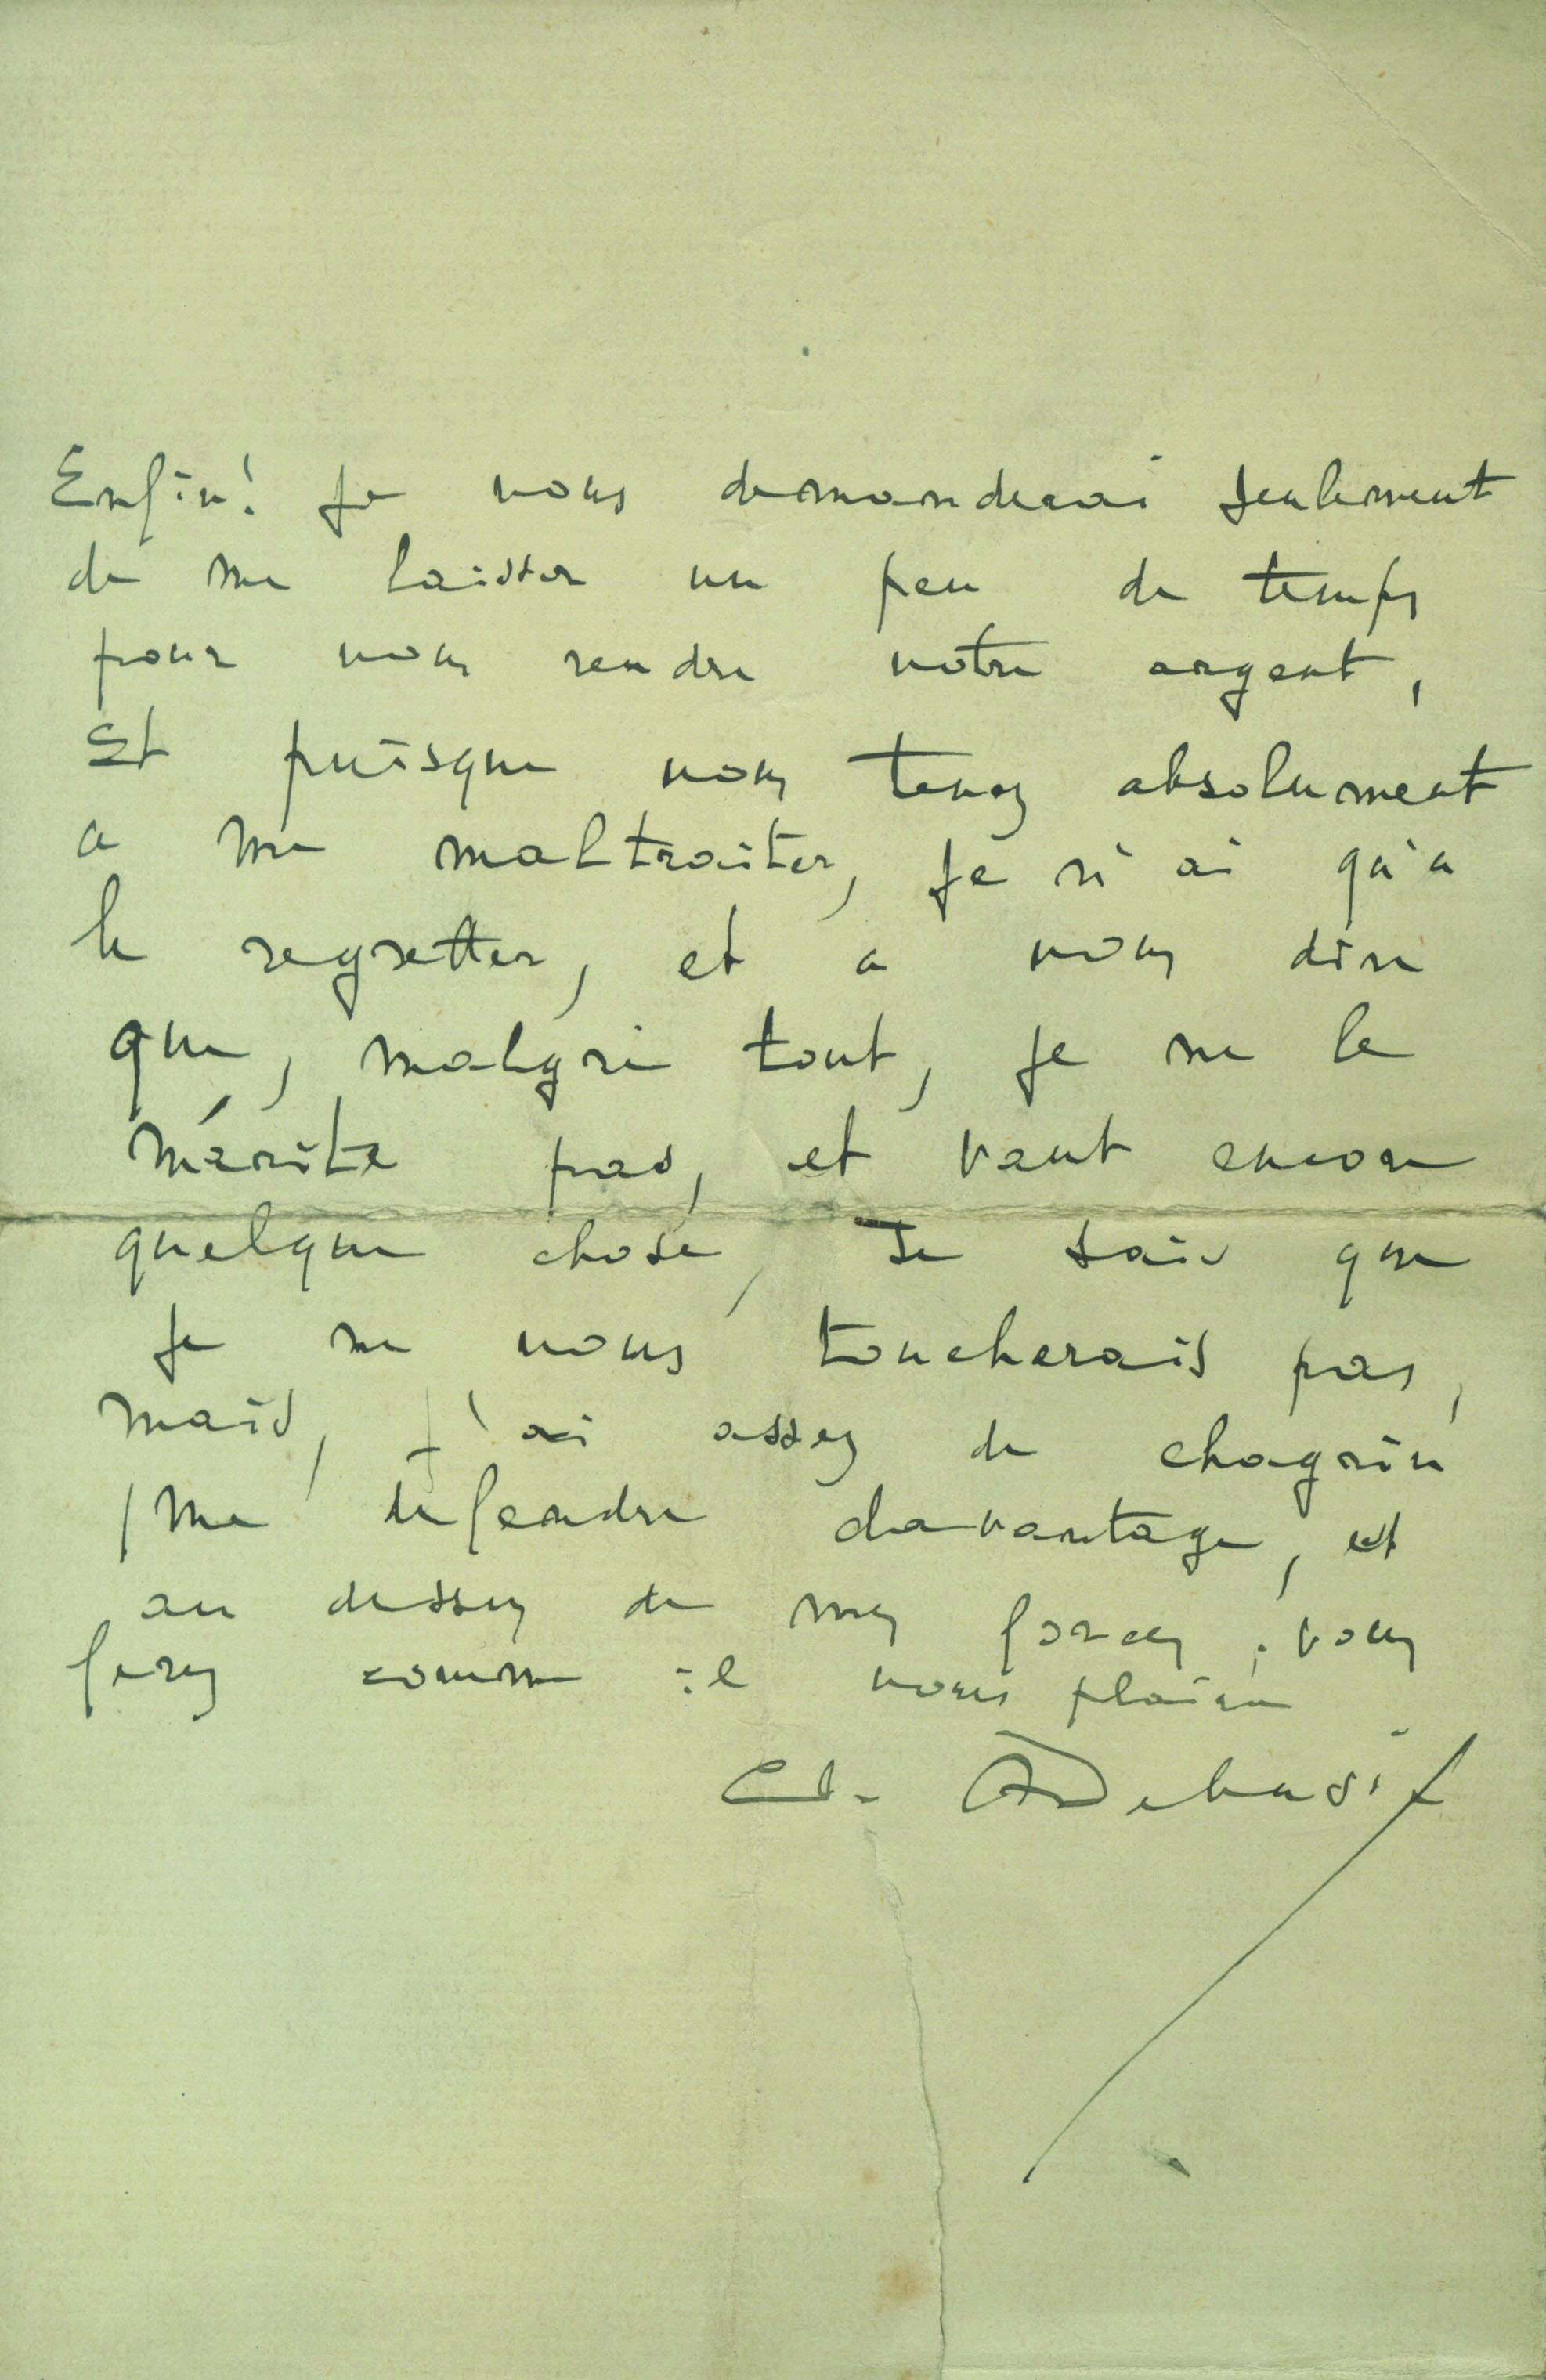 Enfin! je vous demanderai seulement
de me laisser un peu de temps
pour vous rendre votre argent,
Et puisque vous tenez absolument
a me maltraiter, je n'ai qu'a
le regretter, et a vous dire
que, malgré tout, je ne le
mérite pas, et vaut encore
quelque chose, Je sais que
je ne vous toucherais pas,
mais, j'ai assez de chagrin
/ me defendre davantage, est
au dessus de mes forces, vous
ferez comme il vous plaira
Cl. ADebussy